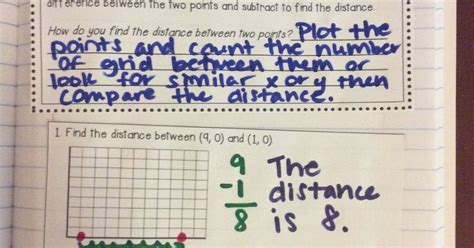 difference between the two points and subtract to find the distance.
How do you find the distance between two points? Plot the
points and count the number
of grid between them or
look for similar x or y then
compare the distance.
1. Find the distance between (9, 0) and (1, 0).
9 The
-1 distance
8 is 8.